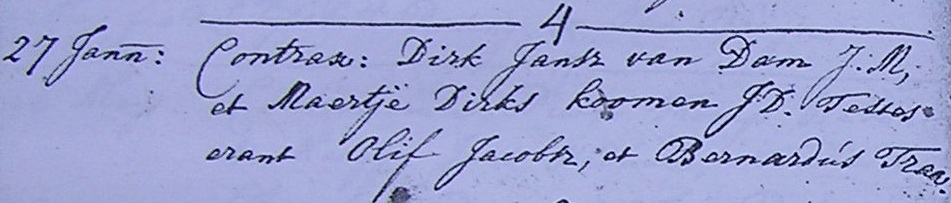 4
27 Jann: Contrax: Dirk Jantz van Dam J. M,
et Maertjë Dirks koomen J D. Testes
erant Olif Jacobtz, et Bernardús Trax.